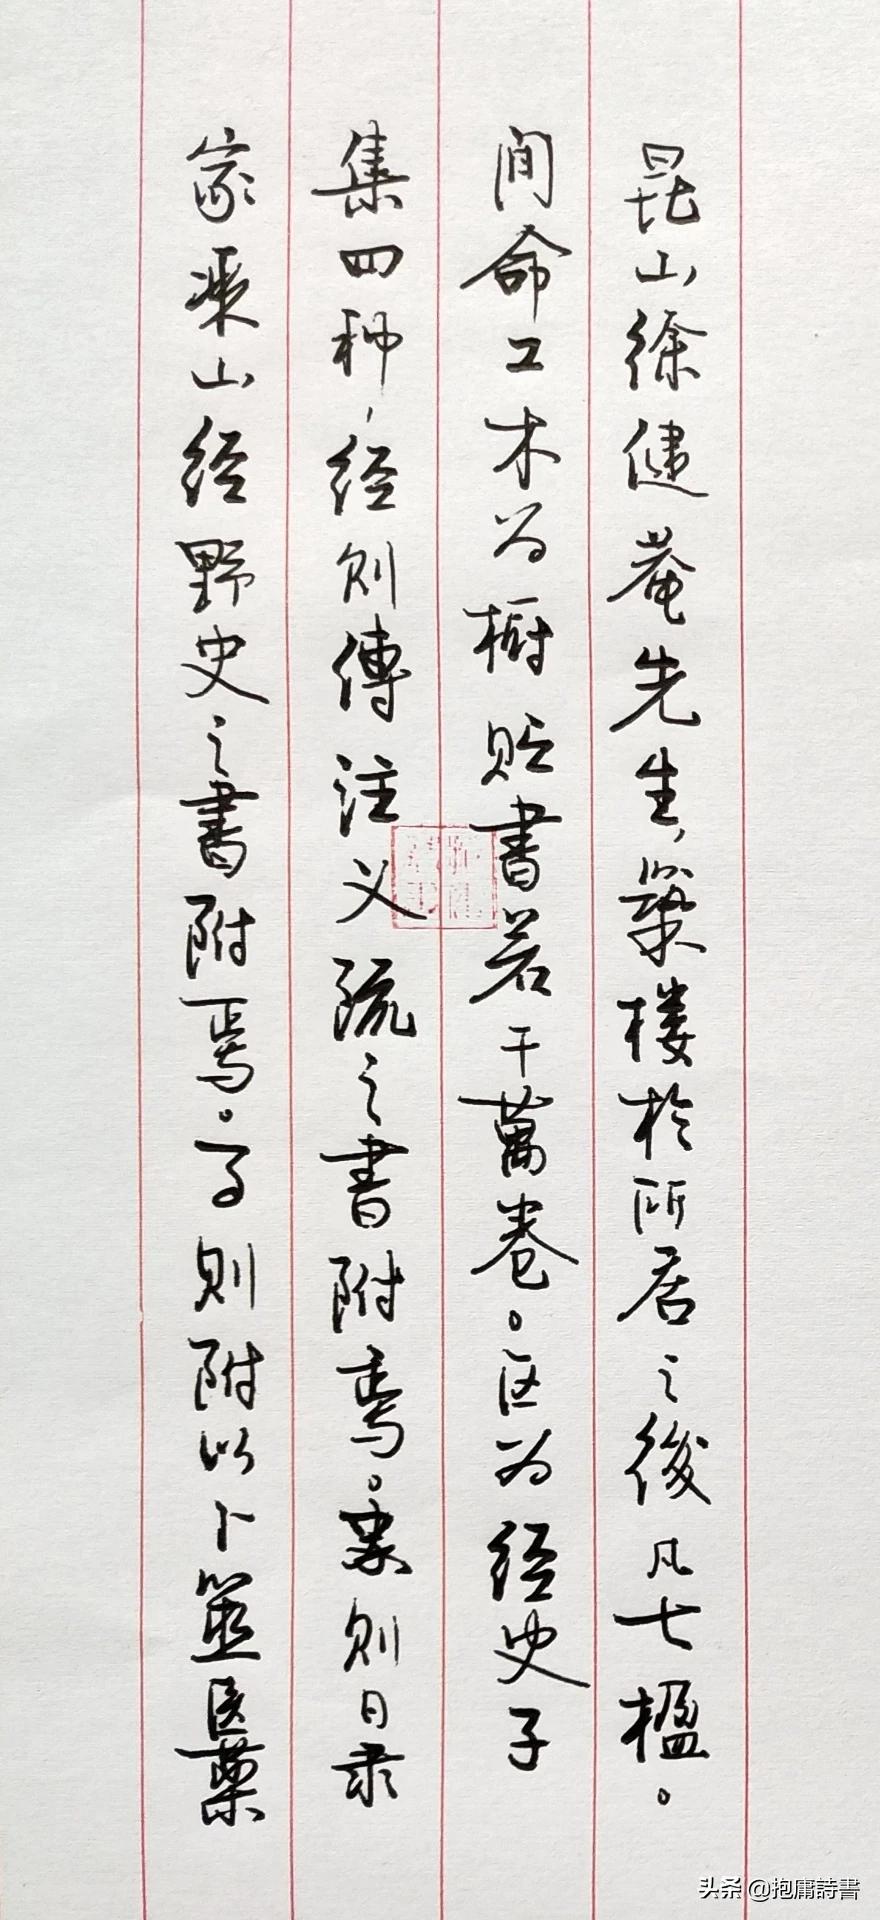 昆山徐健菴先生，築楼於所居之後凡七楹。
间命工木为橱贮書若干萬卷。区为经史子
集四种，经则傳注义疏之書附焉。则日录
家乘山经野史之書附焉。子则附以卜筮医藥
头条 @抱庸詩書